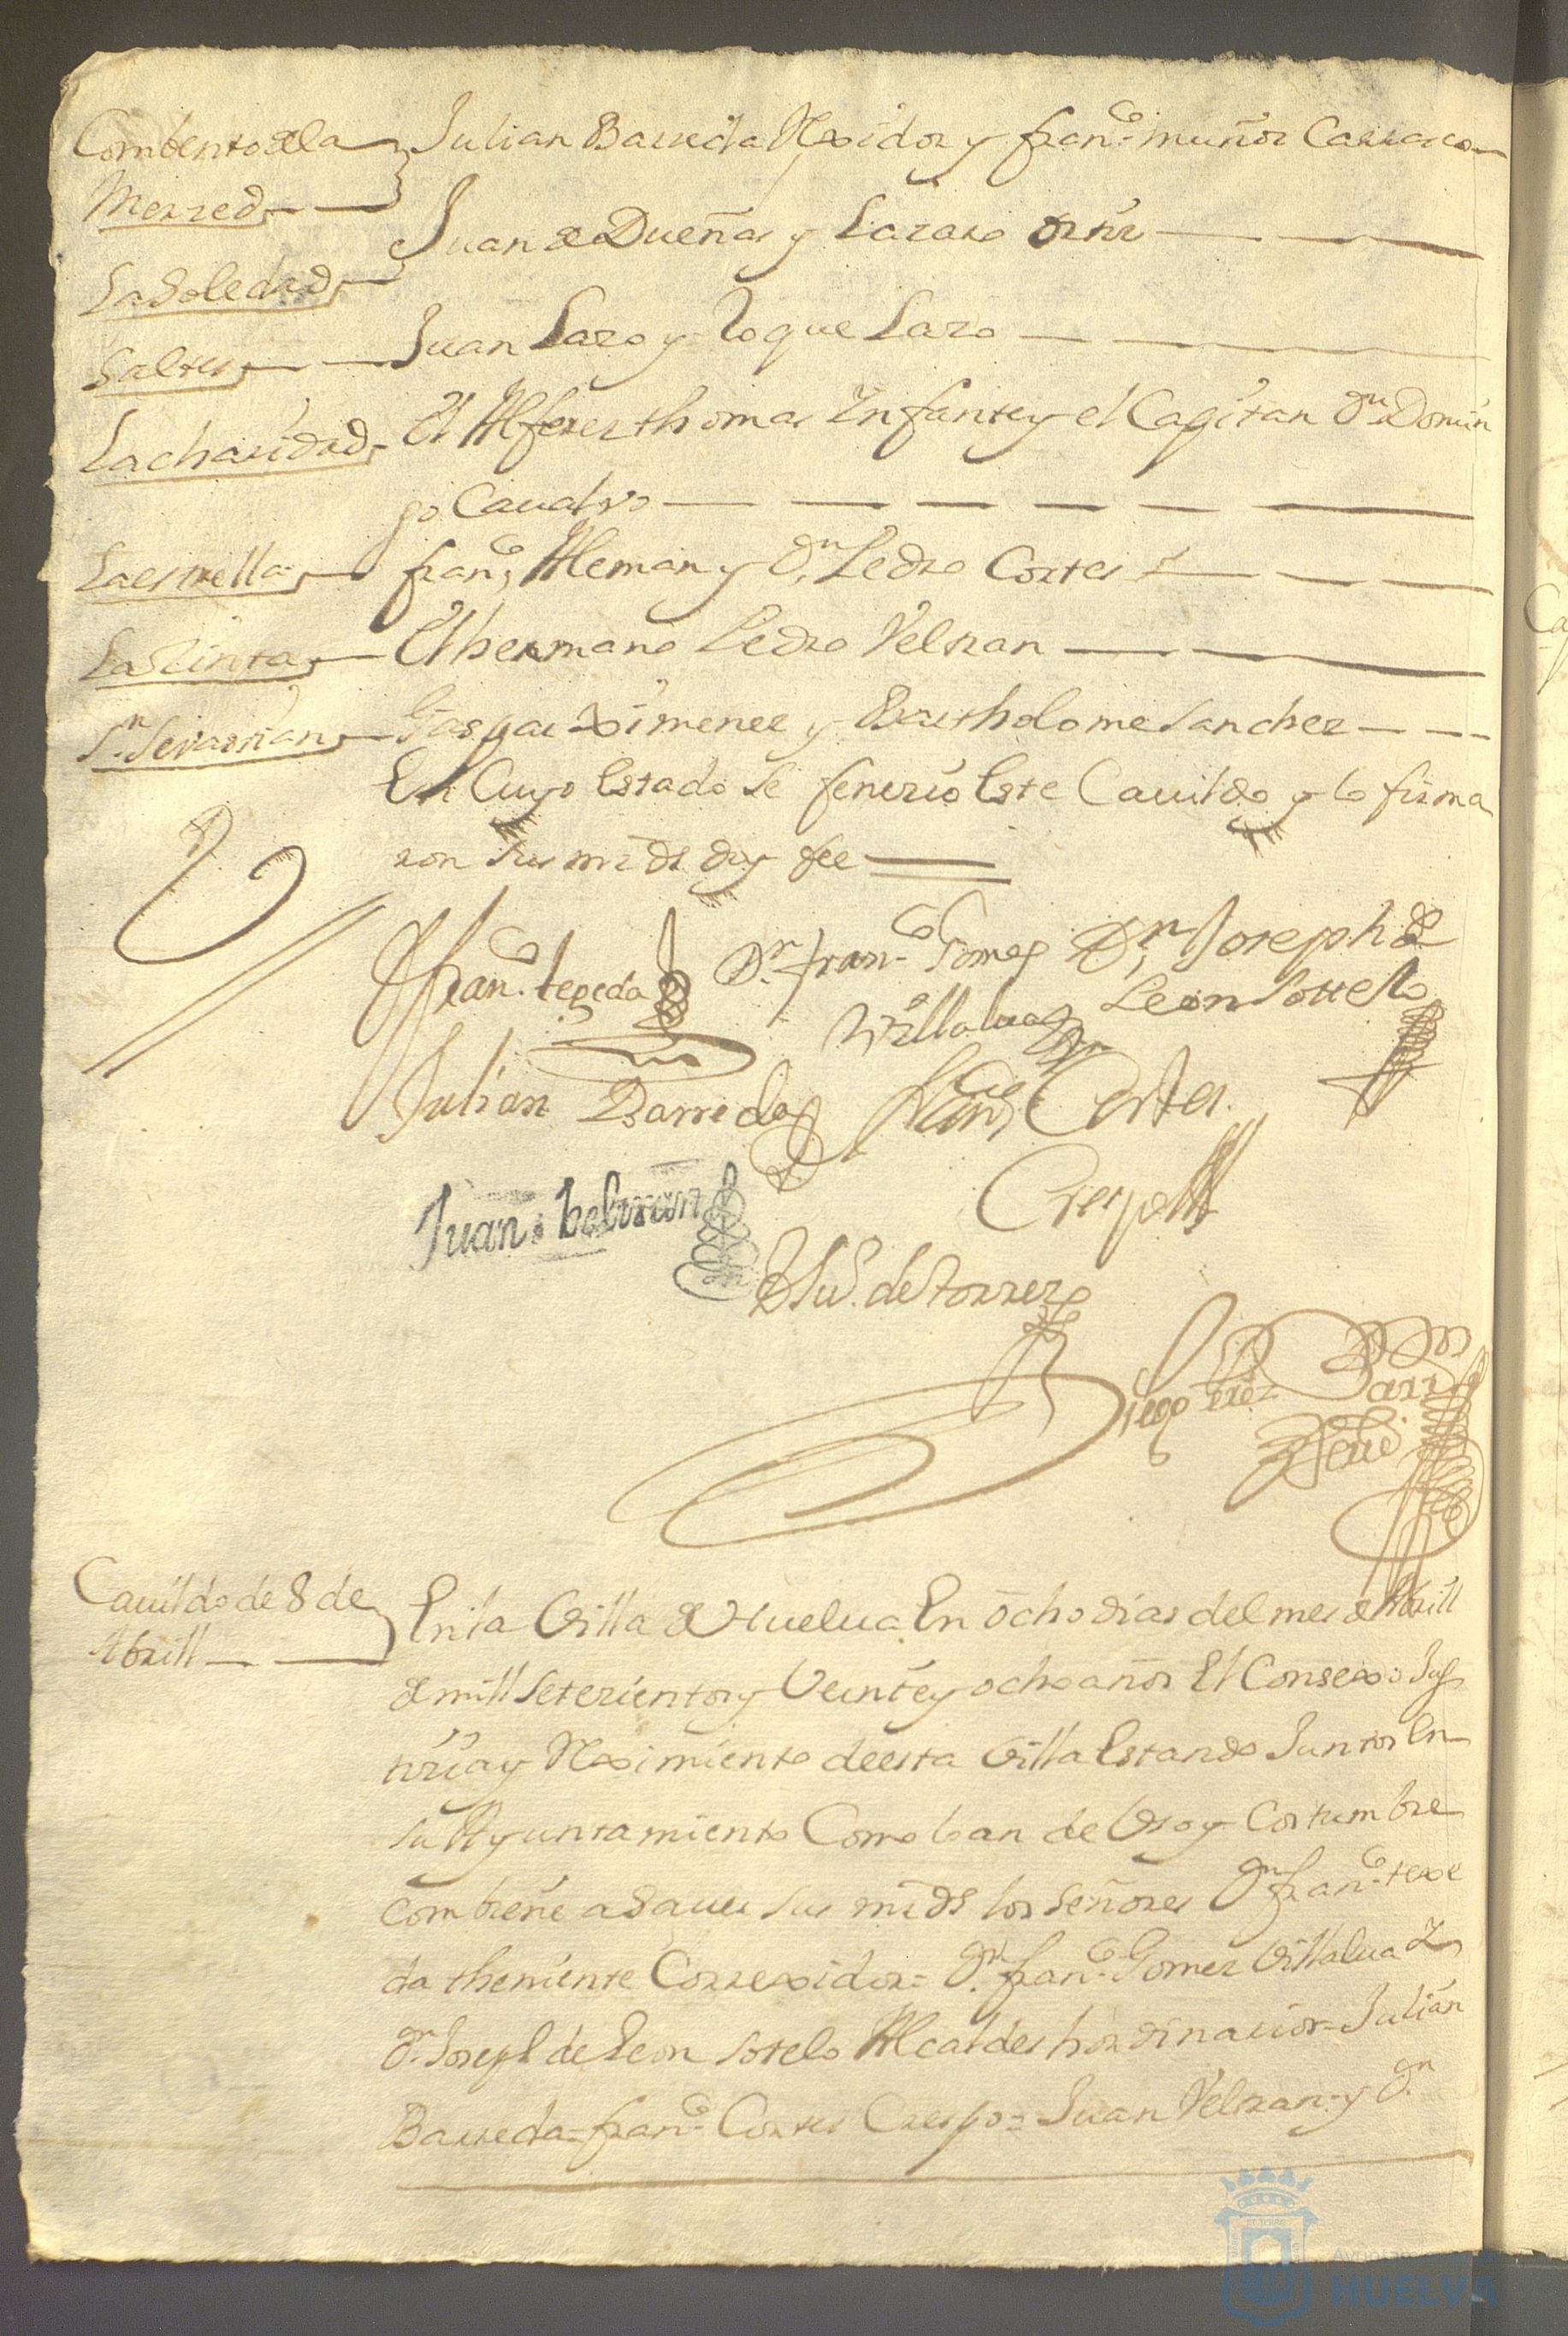 Combento de la
Merzed
Julian Barreda Rexidor y fran.co muñoz Carrasco
La Soledad
Juan de Dueñas y Lazaro
Saltes
Juan Lazo y Roque Lazo
La charidad
El Alferez thomas Infante y el Capitan Dn Domin
go Cauallero
La estrella
fran.co Aleman y Dn Pedro Cortes
La Zinta
El hermano Pedro Veltran
Sn Sevastian
Gaspar Ximenez y Bartholome Sanchez
En Cuyo Estado se fenezió Este Cauildo y lo firma
ron sus mrds doy fee
Fran.co tegeda
Dn fran.co Gomez
Villalua
Dn Joseph de
Leon Sottelo
Julian Barreda
Fran.co Cortes
Crespo
Juan beltran
Lui. de torres
Diego Perez
Cauildo de 8 de
Abrill
En la Villa de Huelua En ocho dias del mes de Abrill
de mill setezientos y Veinte y ocho años El Consexo Jus
tizia y Reximiento de esta Villa Estando Juntos En
su Ayuntamiento Como lo an de Vso y Costumbre
combiene a sauer sus mrds los señores Dn fran.co texe
da theniente Correxidor = Dn fran.co Gomez Villalua y
Dn Joseph de Leon Sotelo Alcaldes hordinarios = Julian
Barreda = fran.co Cortes Crespo = Juan Veltran = y Dn
HUELVA